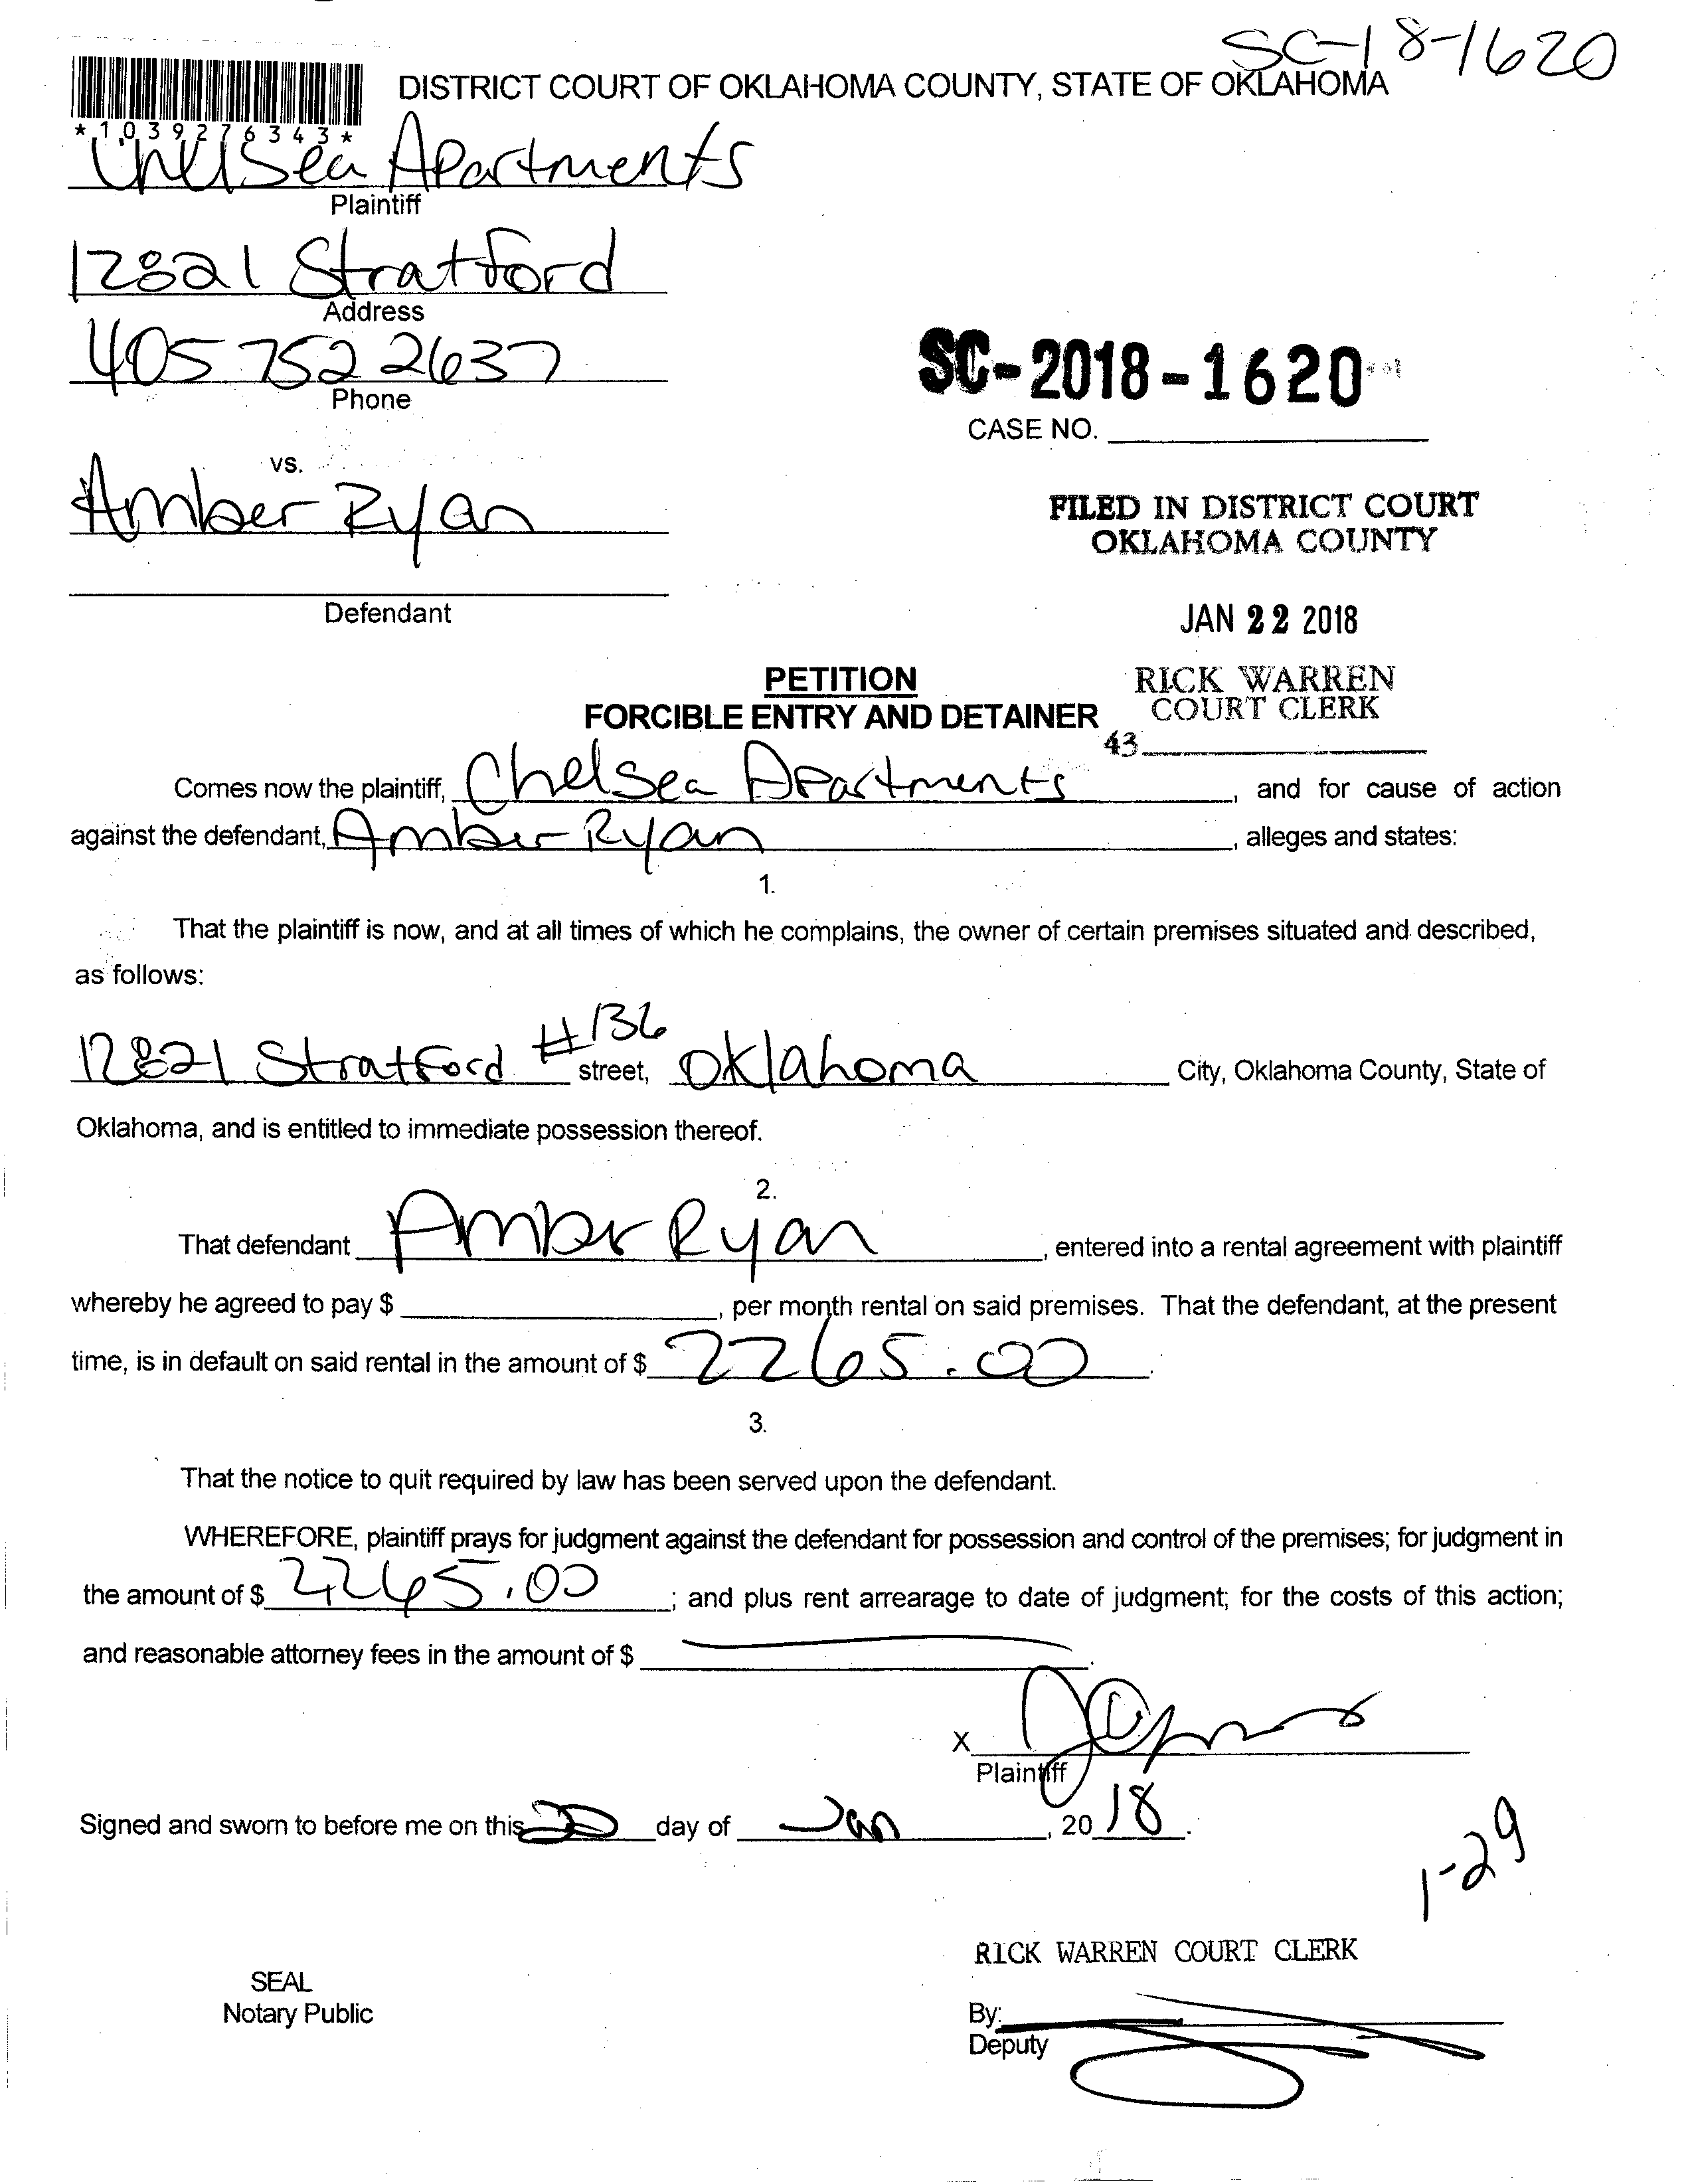 SC-18-1620
DISTRICT COURT OF OKLAHOMA COUNTY, STATE OF OKLAHOMA
*1039276343*
Chelsea Apartments
Plaintiff
12821 Stratford
Address
405 752 2637
Phone
SC-2018-1620
CASE NO.
vs.
Amber Ryan
FILED IN DISTRICT COURT
OKLAHOMA COUNTY
Defendant
JAN 22 2018
PETITION
RICK WARREN
FORCIBLE ENTRY AND DETAINER
COURT CLERK
43
Comes now the plaintiff, Chelsea Apartments, and for cause of action
against the defendant, Amber Ryan, alleges and states:
1.
That the plaintiff is now, and at all times of which he complains, the owner of certain premises situated and described,
as follows:
12821 Stratford #136 street, Oklahoma City, Oklahoma County, State of
Oklahoma, and is entitled to immediate possession thereof.
2.
That defendant Amber Ryan, entered into a rental agreement with plaintiff
whereby he agreed to pay $, per month rental on said premises. That the defendant, at the present
time, is in default on said rental in the amount of $ 2265.00.
3.
That the notice to quit required by law has been served upon the defendant.
WHEREFORE, plaintiff prays for judgment against the defendant for possession and control of the premises; for judgment in
the amount of $ 2265.00; and plus rent arrearage to date of judgment; for the costs of this action;
and reasonable attorney fees in the amount of $.
X
Plaintiff
Signed and sworn to before me on this day of Jan, 2018.
1-29
RICK WARREN COURT CLERK
SEAL
Notary Public
By:
Deputy